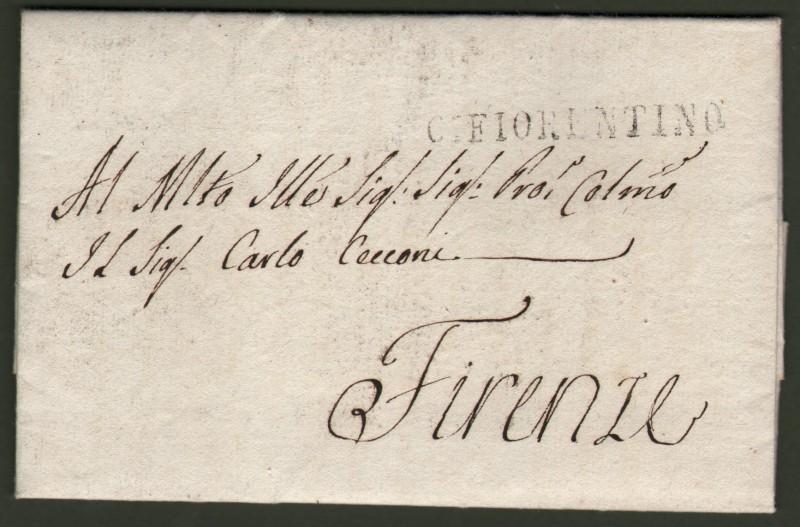 C. FIORENTINO
Al Mlto Ille Sigr. Sigr. Pron Colmo
Il Sigr. Carlo Cecconi
Firenze